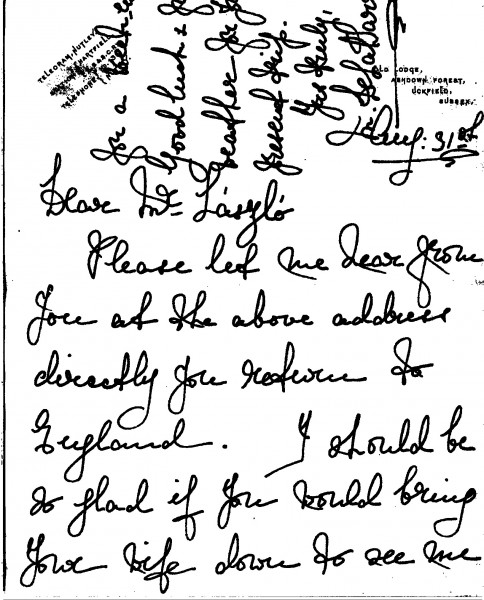 OLD LODGE,
ASHDOWN FOREST,
UCKFIELD,
SUSSEX.
Aug: 31st
Dear Mr László
Please let me hear from
you at the above address
directly you return to
England. I should be
so glad if you would bring
your wife down to see me
for a week-
Good luck &
weather for
present trip.
Yrs truly,